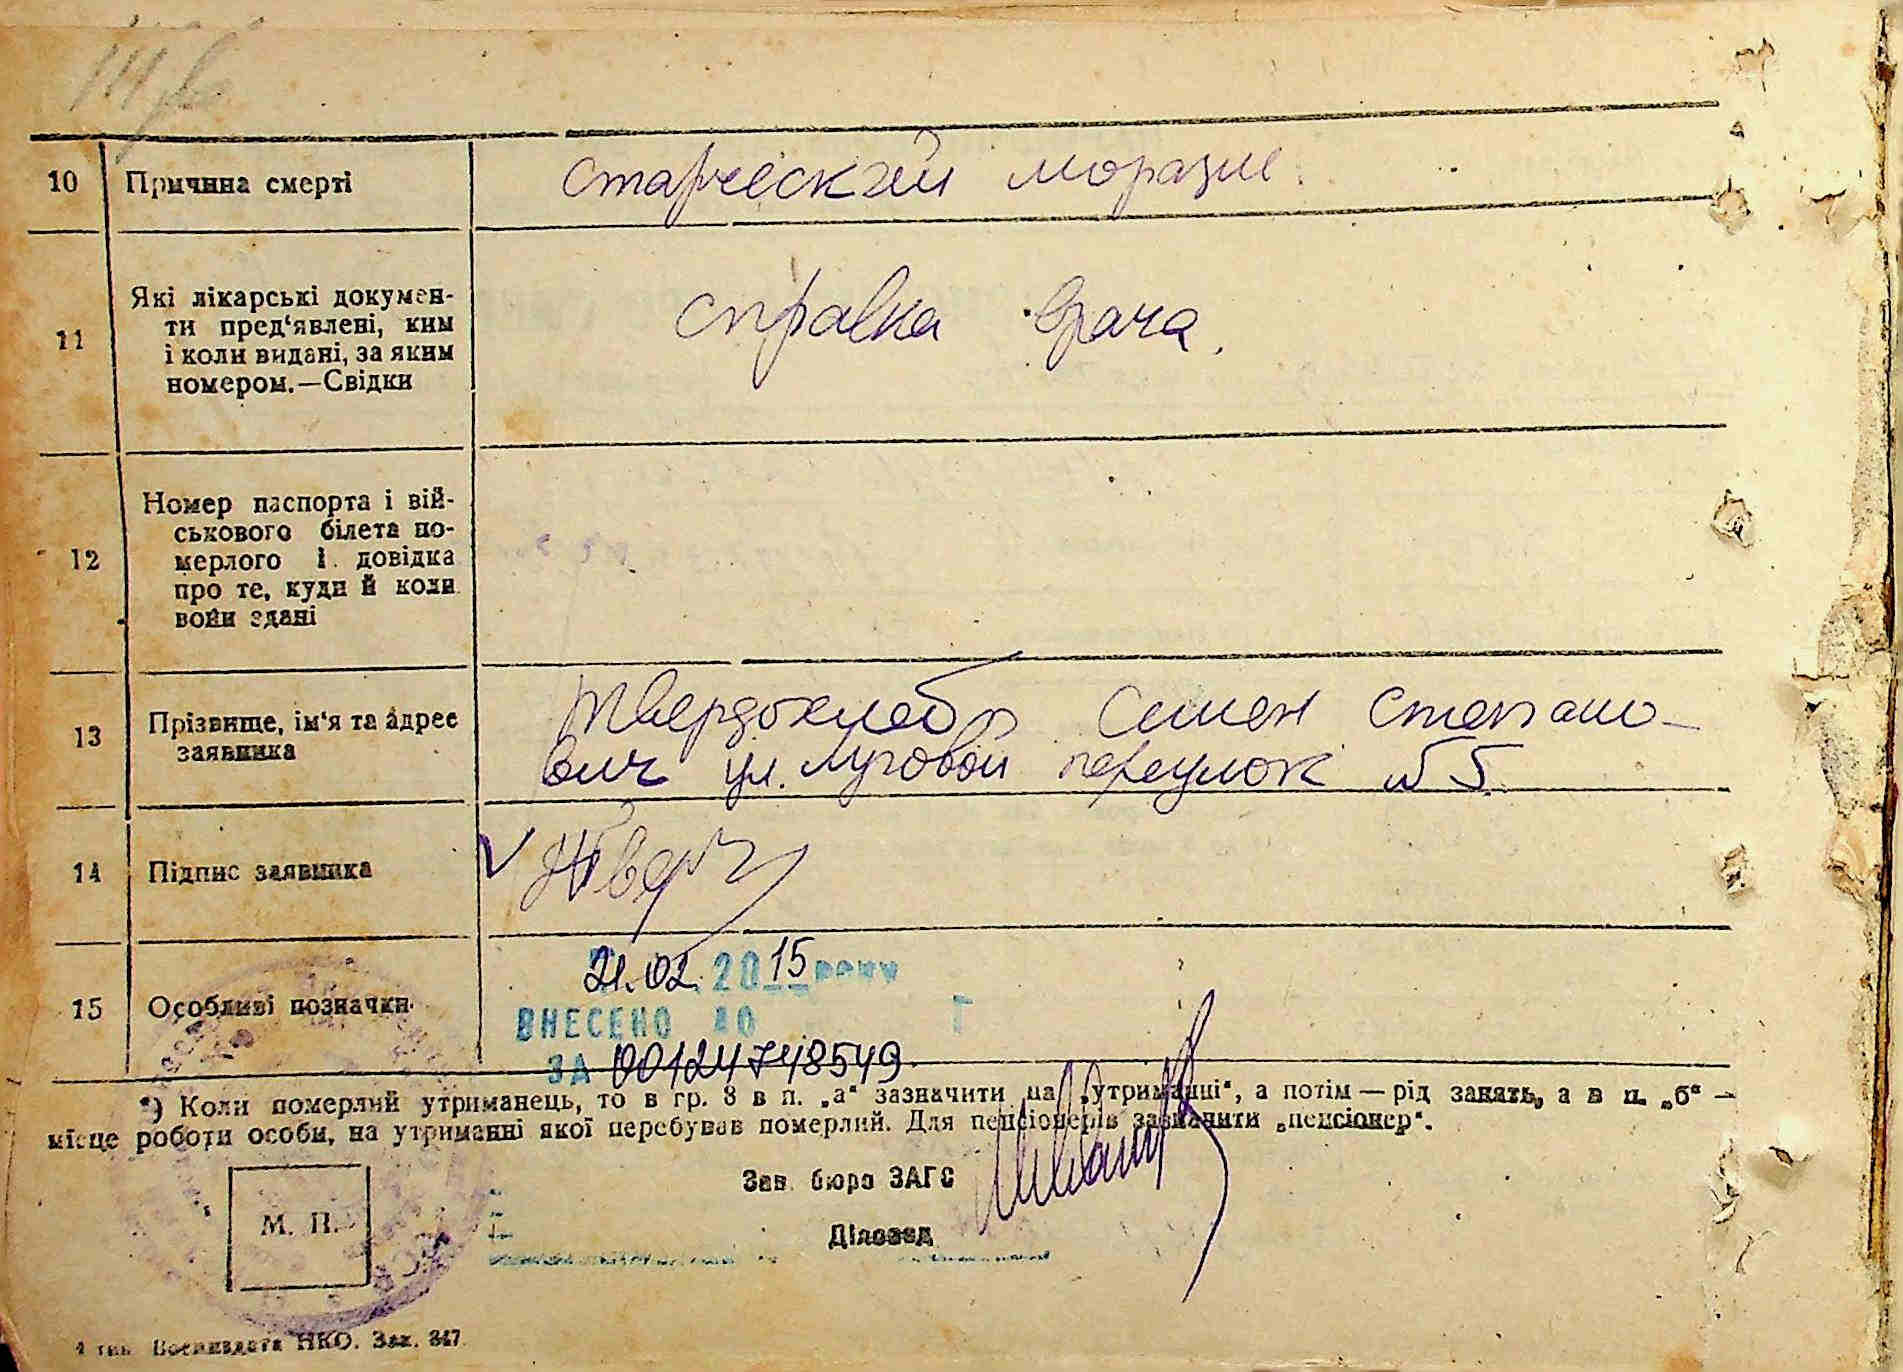 10 Причина смерті старческий моразм.
11 Які лікарські докумен-
ти пред'явлені, ким
і коли видані, за яким
номером.—Свідки
справка врача.
12 Номер паспорта і вій-
ськового білета по-
мерлого і довідка
про те, куди й коли
вони здані
13 Прізвище, ім'я та адрес
заявника
Твердохлеб Семен Степано-
вич ул. Луговой переулок № 5
14 Підпис заявника
15 Особливі позначки
21.02.2015 року
ВНЕСЕНО ДО Г
ЗА 00124748549
*) Коли померлий утриманець, то в гр. 8 в п. „а“ зазначити на „утриманці“, а потім — рід занять, а в п. „б“ —
місце роботи особи, на утриманні якої перебував померлий. Для пенсіонерів зазначити „пенсіонер“.
Зав. бюро ЗАГС
М. П.
Діловод
4 тип. Воениздата НКО. Зак. 347